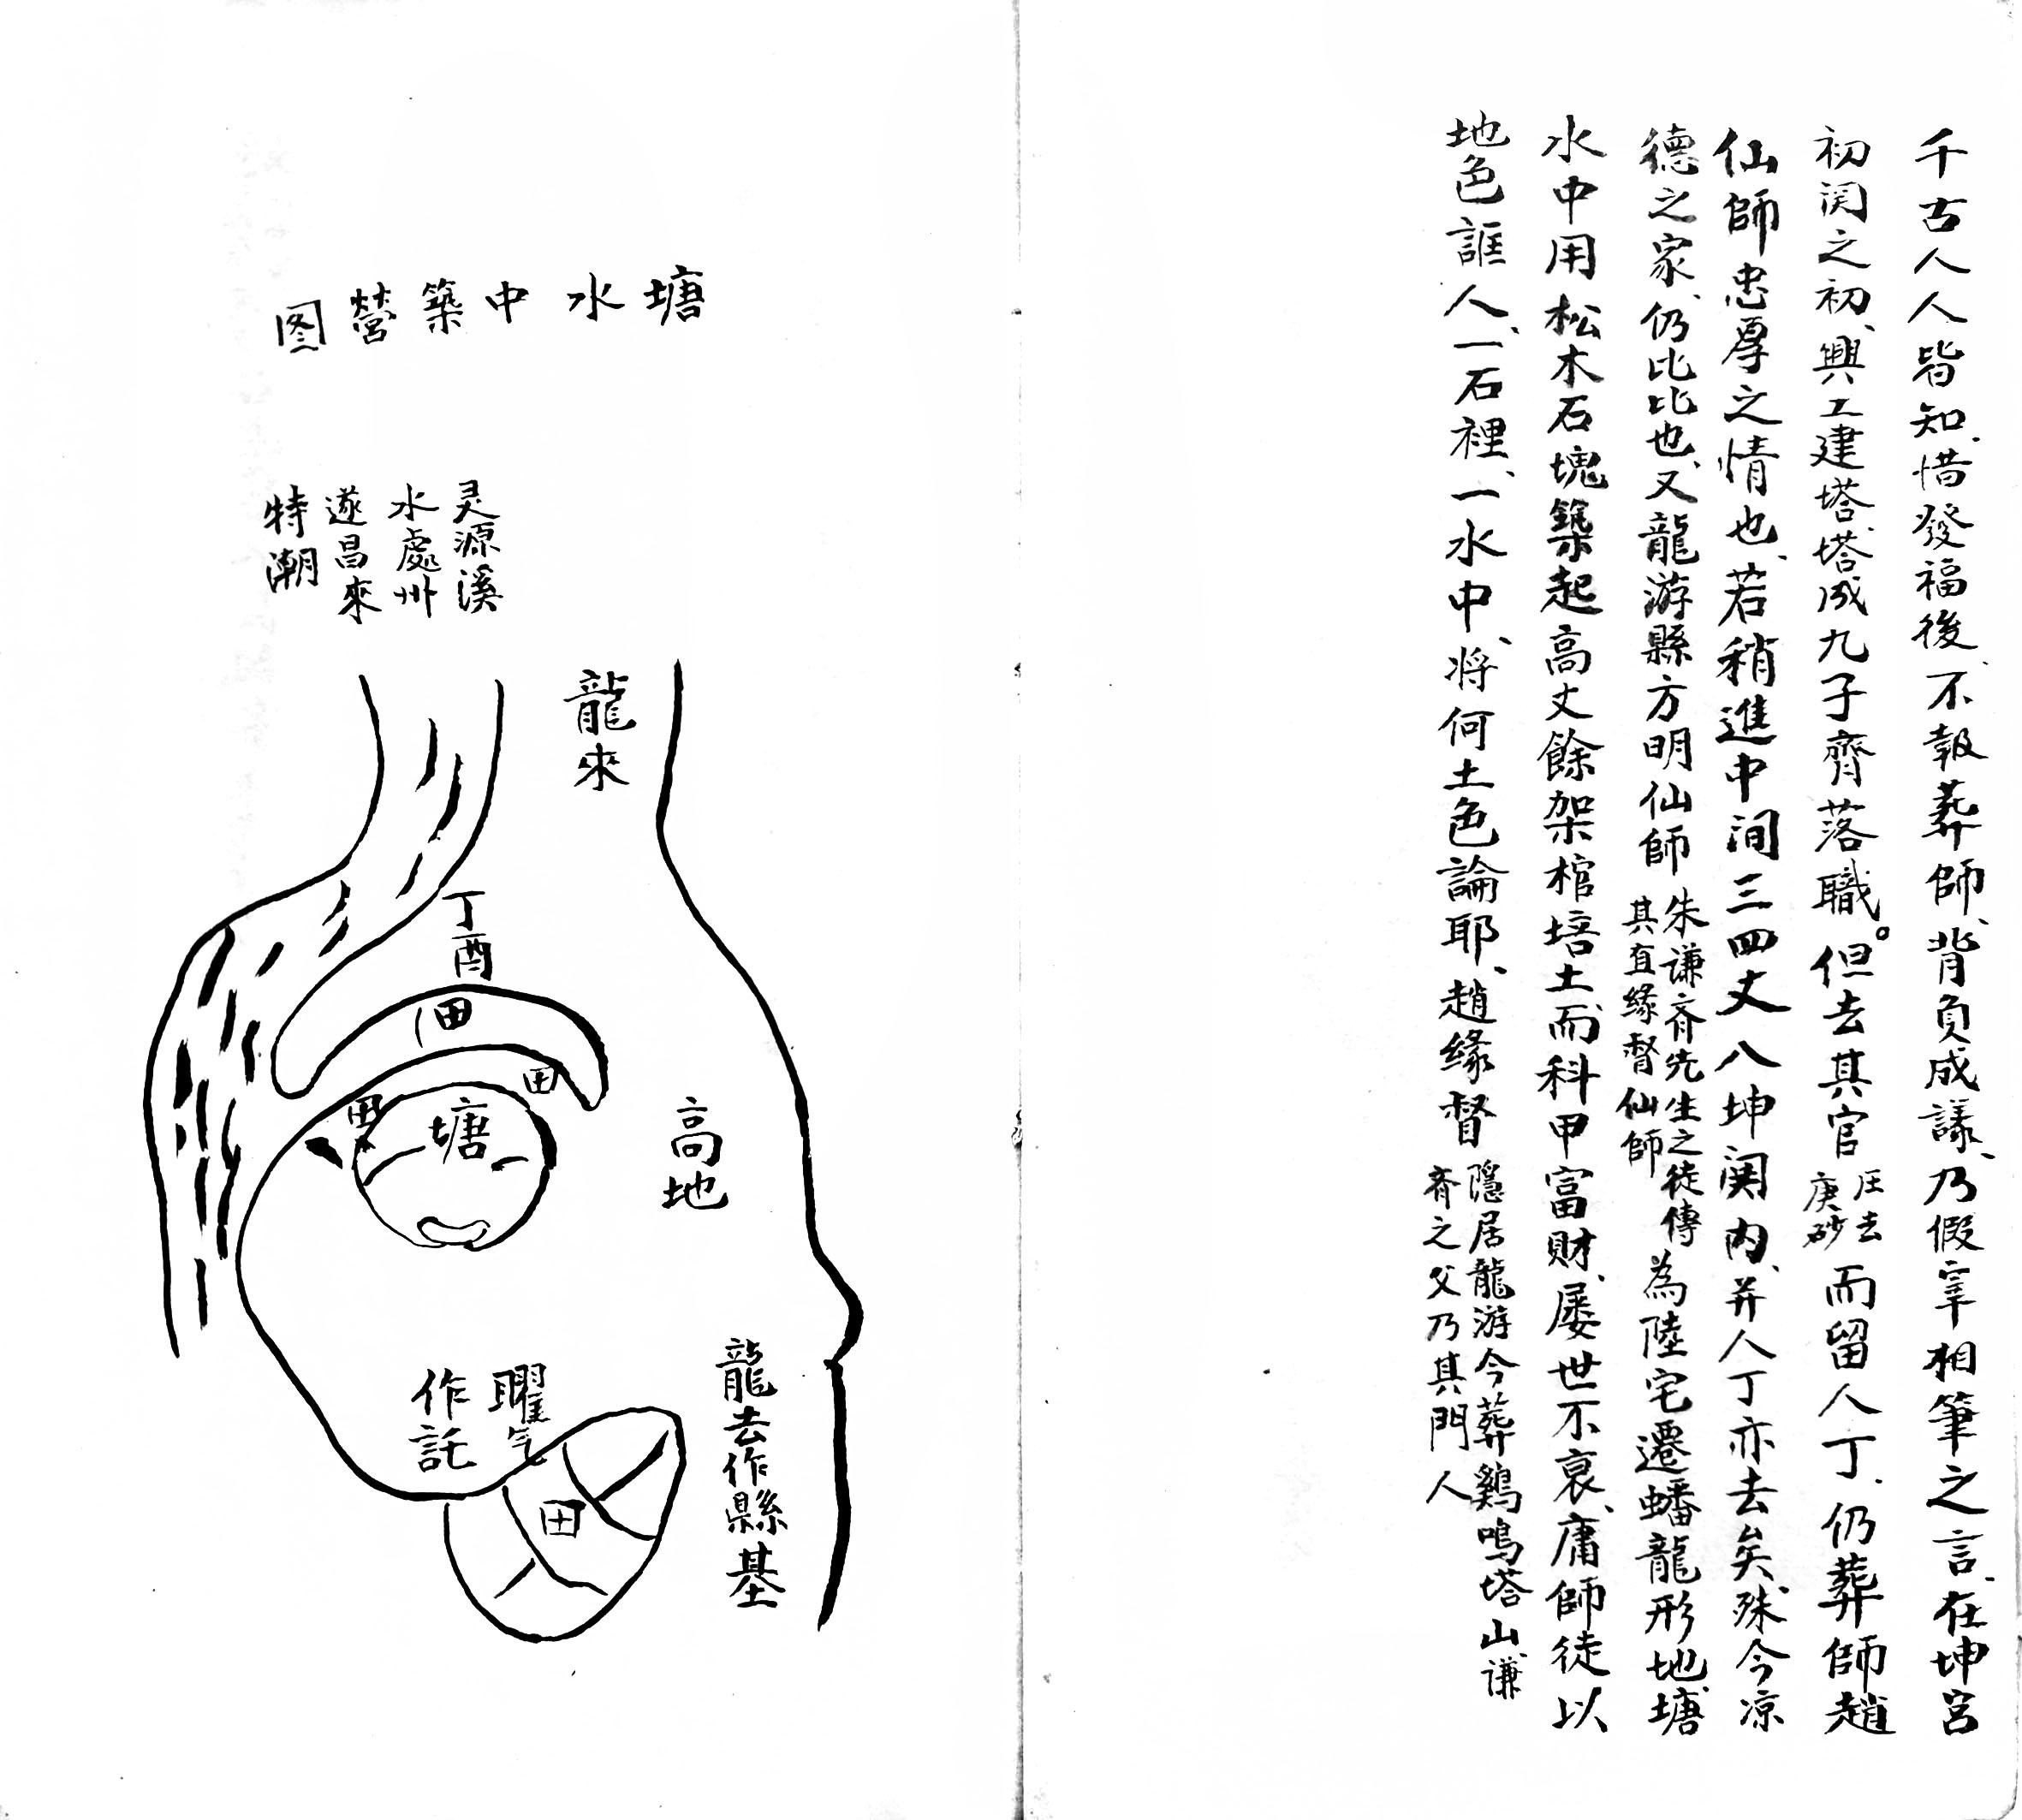 千古人人皆知、惜發福後、不報葬師、背負成議、乃假宰相筆之言、在坤宮
初関之初、興工建塔、塔成九子齊落職。但去其官圧去庚砂而留人丁、仍葬師趙
仙師忠厚之情也、若稍進中间三四丈八坤関内、并人丁亦去矣、殊今凉
德之家、仍比比也、又龍游縣方明仙師朱谦斉先生之徒傳其直緣督仙師為陸宅遷蟠龍形地、塘
水中用松木石塊築起高丈餘架棺培土、而科甲富財、屡世不衰、庸師徒以
地色誆人、一石裡、一水中、将何土色論耶、趙缘督隱居龍游今葬鷄鳴塔山、谦斉之父乃其門人
塘水中築營图
灵源溪
水處州
遂昌來
特潮
龍來
丁酉
田
田
田
塘
高地
龍去作縣基
曜气
作託
田